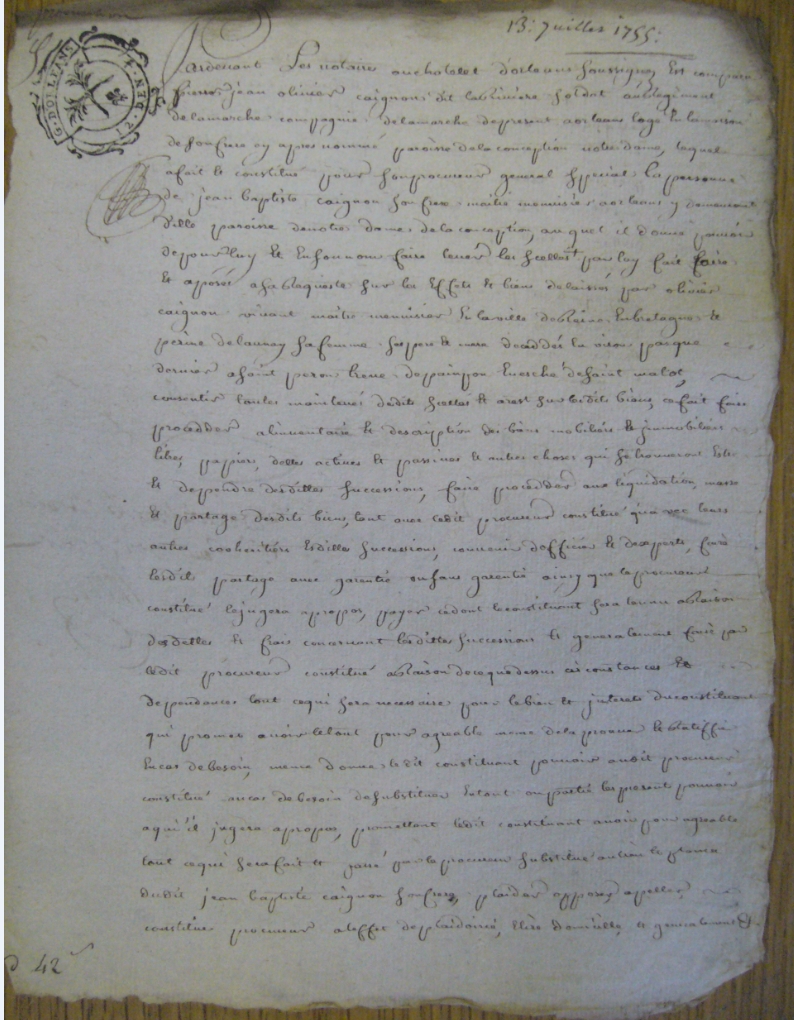 procuration
13: Juillet 1755:
G. D'ORLEANS
12. DEN. 4
Pardevant Les notaires au chatelet d'orleans soussignez Est comparu
pierre jean olivier caignon dit soldat au Regiment
delamarche compagnie delamarche depresent aorleans logé En la maison
de son frere cy apres nommé paroisse de la conception notre dame, lequel
afait & constitué pour son procureur general & special La personne
de jean baptiste caignon son frere maitre menuisier aorleans y demeurant
ditte paroisse denotre dame de la conception, au quel il donne pouvoir
depour luy & Enson nom faire lever les scellés par luy fait faire
& aposés asa Requeste sur les Effets & biens delaissés par olivier
caignon vivant maitre menuisier En la ville En bretagne &
perine delaunay sa femme ses pere & mere decedés
dernier asaint peran treve de paimpon Evesché de saint malo,
consentir toutes mainlevés desdits scellés & arest sur lesdits biens, ce fait faire
procedder alinventaire & description des biens mobiliers & immobiliers
titres, papiers, dettes actives & passives & autres choses qui se trouveront Estre
& dependre desdittes successions, faire procedder aux liquidation, masse
& partage desdits biens, tant avec ledit procureur constitué qu'avec leurs
autres coheritiers Esdittes successions, convenir d'officiers & dexperts, faire
lesdit partage avec garentie ou sans garentie ainsy que le procureur
constitué le jugera apropos, payer ce dont le constituant sera tenu araison
des dettes & frais concernant lesdittes successions & generalement faire par
ledit procureur constitué araison de ce que dessus circonstances Et
dependances tout cequi sera necessaire pour le bien & interets du constituant
qui promet avoir le tout pour agreable meme de laprouver & Ratiffier
En cas de besoin, meme donne ledit constituant pouvoir audit procureur
constitué au cas de besoin de substituer Entout ou partie les present pouvoir
aqui il jugera apropos, promettant ledit constituant avoir pour agreable
tout cequi sera fait et geré par le procureur substitué au lieu & place
dudit jean baptiste caignon son frere, plaider opposer, apeller,
constituer procureur aleffet de plaidoirie, Elire domicille, & generalement &
42